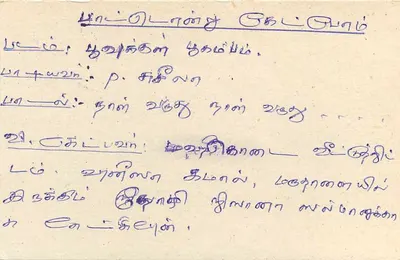 பாட்டொன்று கேட்போம்
படம்: பூவுக்கள் பூகம்பம்.
பாடியவர்: p. சுசீலா
பாடல்: நாள் வருது நாள் வருது ......
வி. கேட்பவர்: வீட்டுத்தி
டம். வானிஸா கமால், மருதானையில்
இருக்கும் நிஸானா ஸல்மானுக்கா
க கேட்கிறேன்.